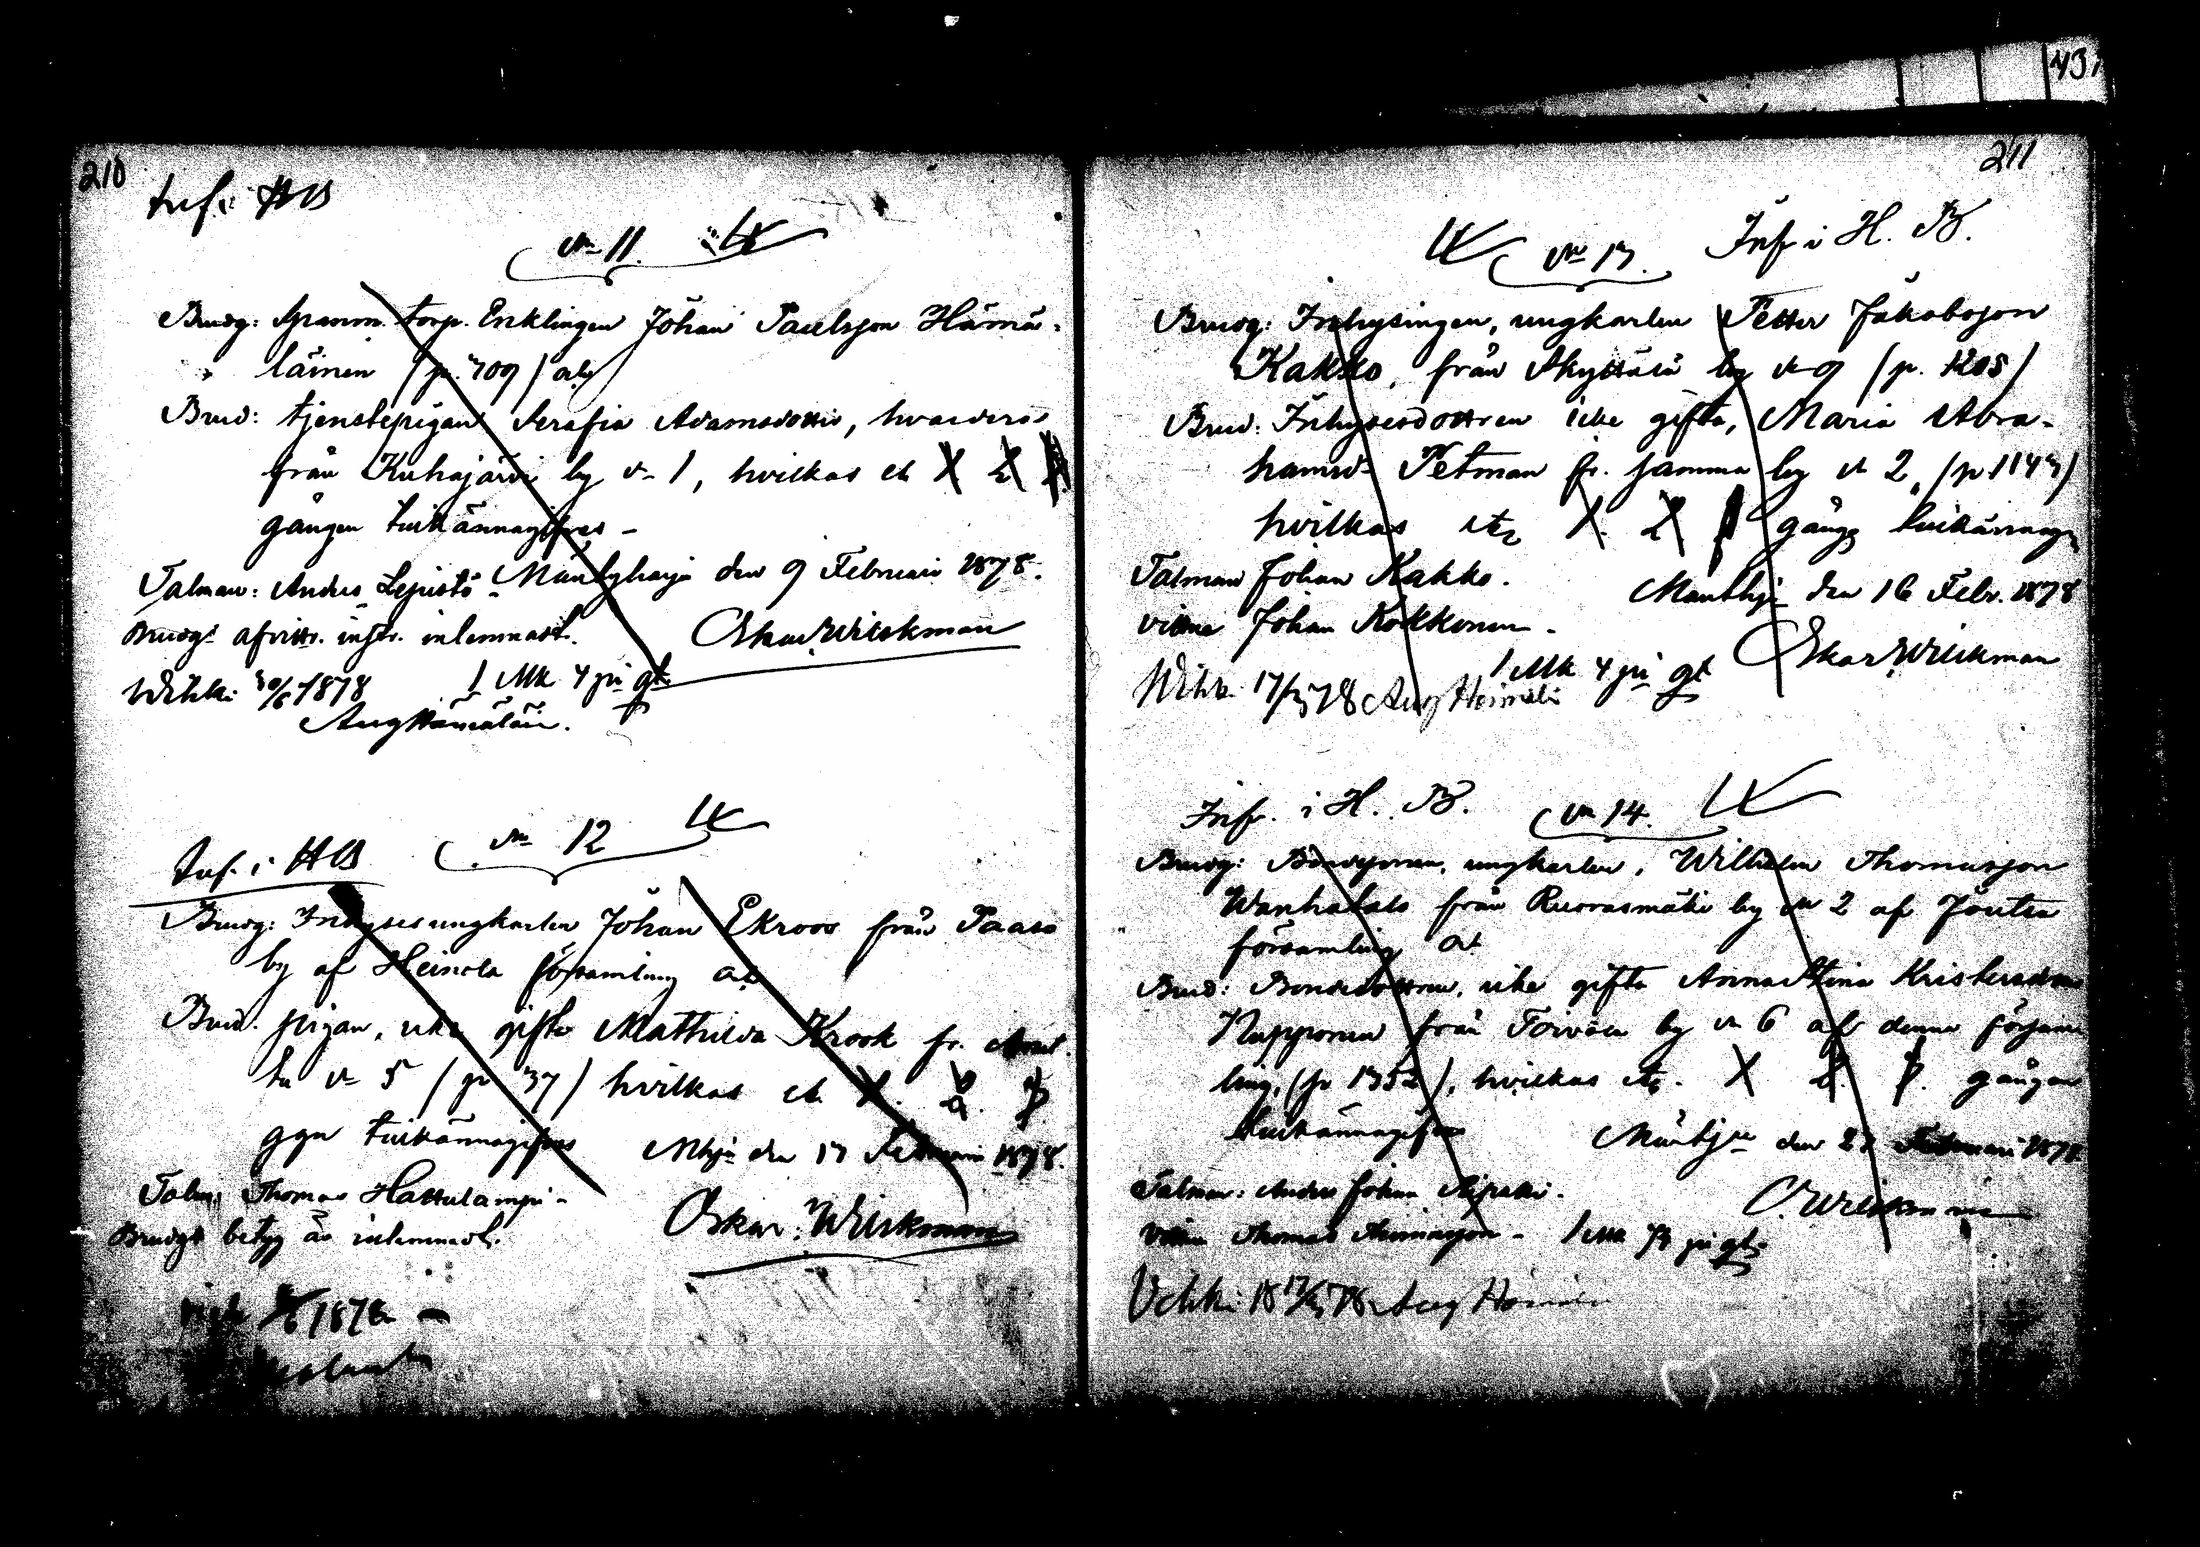 210
Inf. i HB
No 11.
Brudg: Spanm. torp. Enklingen Johan Paulsson Hämä-
läinen (p. 709) och
Brud: tjenstepigan Serafia Adamsdotter, hvardera
från Kuhajärvi by No 1, hvilkas etc 1 2 3
gången tvikännagifves -
Talman: Anders Lepistö - Mäntyharju den 9 Februari 1878.
Brudgs afvittr. instr. inlemnadt. Oskar Wilskman
Wihki 30/6 1878 1 Mk 4 pi gt
Aug Hämäläin.
No 12
Inf. i HB
Brudg: Inhyses ungkarlen Johan Ekroos från Paaso
by af Heinola församling och
Brud. pigan, icke gifta Mathilda Krook fr.
No 5 (p 37) hvilkas etc 1. 2. 3
ggn tvikännagifves Mhju den 17 Februari 1878.
Talm: Thomas Hattulampi -
Brudgs betyg är inlemnadt. Oskar Wilskman
1878
43
211
No 13. Inf i H. B.
Brudg: Inhysingen, ungkarlen Petter Jakobsson
Kakko, från by No 9 (p. 1205)
Brud: Inhysesdottren icke gifta, Maria Abra-
hamsd Petman fr. samma by No 2, (p 1143)
hvilkas etc 1. 2 3 gång tvikännag
Talman Johan Kakko. Mänthju den 16 Febr. 1878
vittne Johan Kokkonen - Oskar Wilskman
Wihk 17/3 78 Aug Heimäläi 1 Mk 4 pi gt
Inf. i H. B. No 14.
Brudg: Bondesonen, ungkarlen, Wilhelm Thomasson
Wanhatalo från Ruorasmäki by No 2 af Joutsa
församling och
Brud: Bondedottren, icke gifta Anna Stina Kristersdotter
Napponen från Toivola by No 6 af denna försam
ling, (p 1352), hvilkas etc. 1 2. 3. gången
tvikännagifves Mäntyju den 23 Februari 1878
Talman: Anders Johan O. Wilskman
vittne Thomas - 1 Mk pi gt
Vihki 18 78 Aug